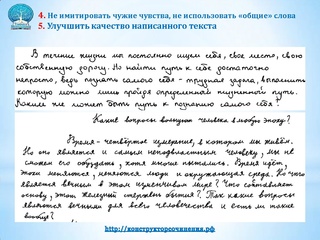 4. Не имитировать чужие чувства, не использовать «общие» слова
5. Улучшить качество написанного текста
В течение жизни мы постоянно ищем себя, свое место, свою
собственную дорогу. Но найти путь к себе достаточно
непросто, ведь познать самого себя - трудная задача, выполнить
которую можно лишь пройдя определенной жизненный путь.
Каким же может быть путь к познанию самого себя?
Какие вопросы волнуют человека в любую эпоху?
Время - четвёртое измерение, в котором мы живём.
Но оно является и самым неподвластным человеку, мы не
сможем его обуздать, хотя многие пытались. Время идёт,
эпохи меняются, меняются люди и окружающая среда. Но что
является вечным в этом изменчивом мире? Что составляет
основу, этот железный стержень бытия? Так какие вопросы
являются вечными для всего человечества и есть ли такие
вообще?
http://конструкторсочинения.рф